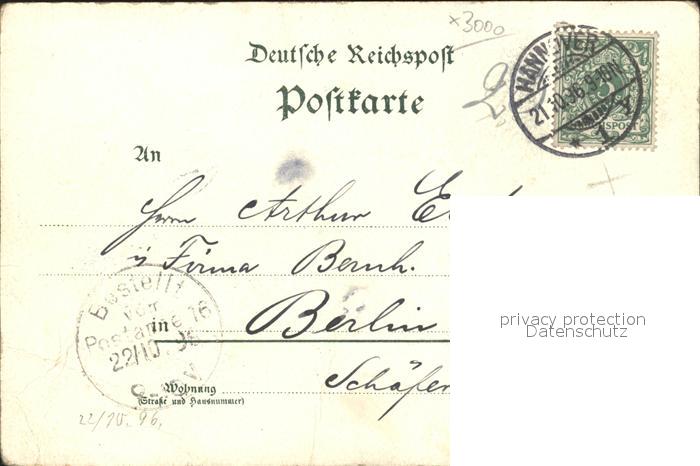 x3000
Deutsche Reichspost
Postkarte
HANNOVER
21.10.96.
* 1
An
Herrn Arthur
i/ Firma Bernh.
Bestellt
vom
Postamte 16
22/10.96
in Berlin
privacy protection
Datenschutz
Wohnung
(Straße und Hausnummer)
Schäfer
22/10. 96.